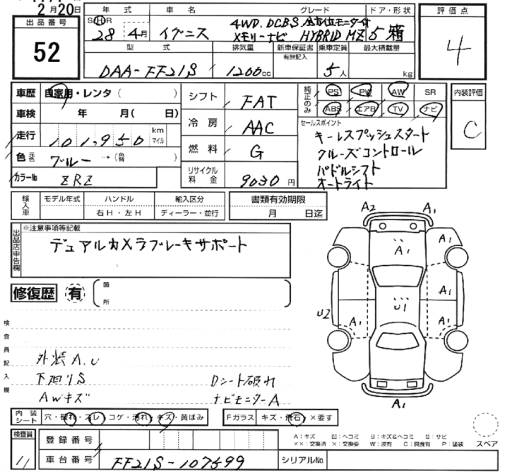 2月20日
出品番号
52
年式
車名
グレード
ドア・形状
28 4月
イグニス
4WD.DCBS.全方位モニター付
XモリーナビHYBRID MZ
5箱
評価点
4
型式
排気量
新車保証書 有無記入
乗車定員
最大積載量
DAA-FF21S
1200cc
5人
kg
車歴 自家用・レンタ( )
シフト FAT
純正のみ
PS PW AW SR
ABS エアB TV ナビ
内装評価
C
車検 年 月( 日)
冷房 AAC
セールスポイント
キーレスプッシュスタート
クルーズコントロール
パドルシフト
オートライト
走行 101,950 km マイル
燃料 G
色 元色 ブルー→( 替)
リサイクル料金 9030円
カラーNo ZRZ
輸入車
モデル年式
ハンドル 右H・左H
輸入区分 ディーラー・並行
書類有効期限 月 日迄
出品店申告欄
※注意事項等記載
デュアルカメラブレーキサポート
修復歴 有 箇所
検査員記入欄
外装A.U
下廻りS
AWキズ
Dシート破れ
ナビモニターA
A2 A1
A1
A1
A1
U1
U2
A1
A1
A1
内装シート
穴・破れ・スレ・コゲ・汚れ・キズ・黄ばみ
Fガラス キズ・飛石・×要す
検査員
11
登録番号
車台番号 FF21S-107699
シリアルNo
A:キズ U:ヘコミ B:キズ&ヘコミ S:サビ
××:交換済 X:交換要 W:波有 C:腐食 P:塗装
スペア